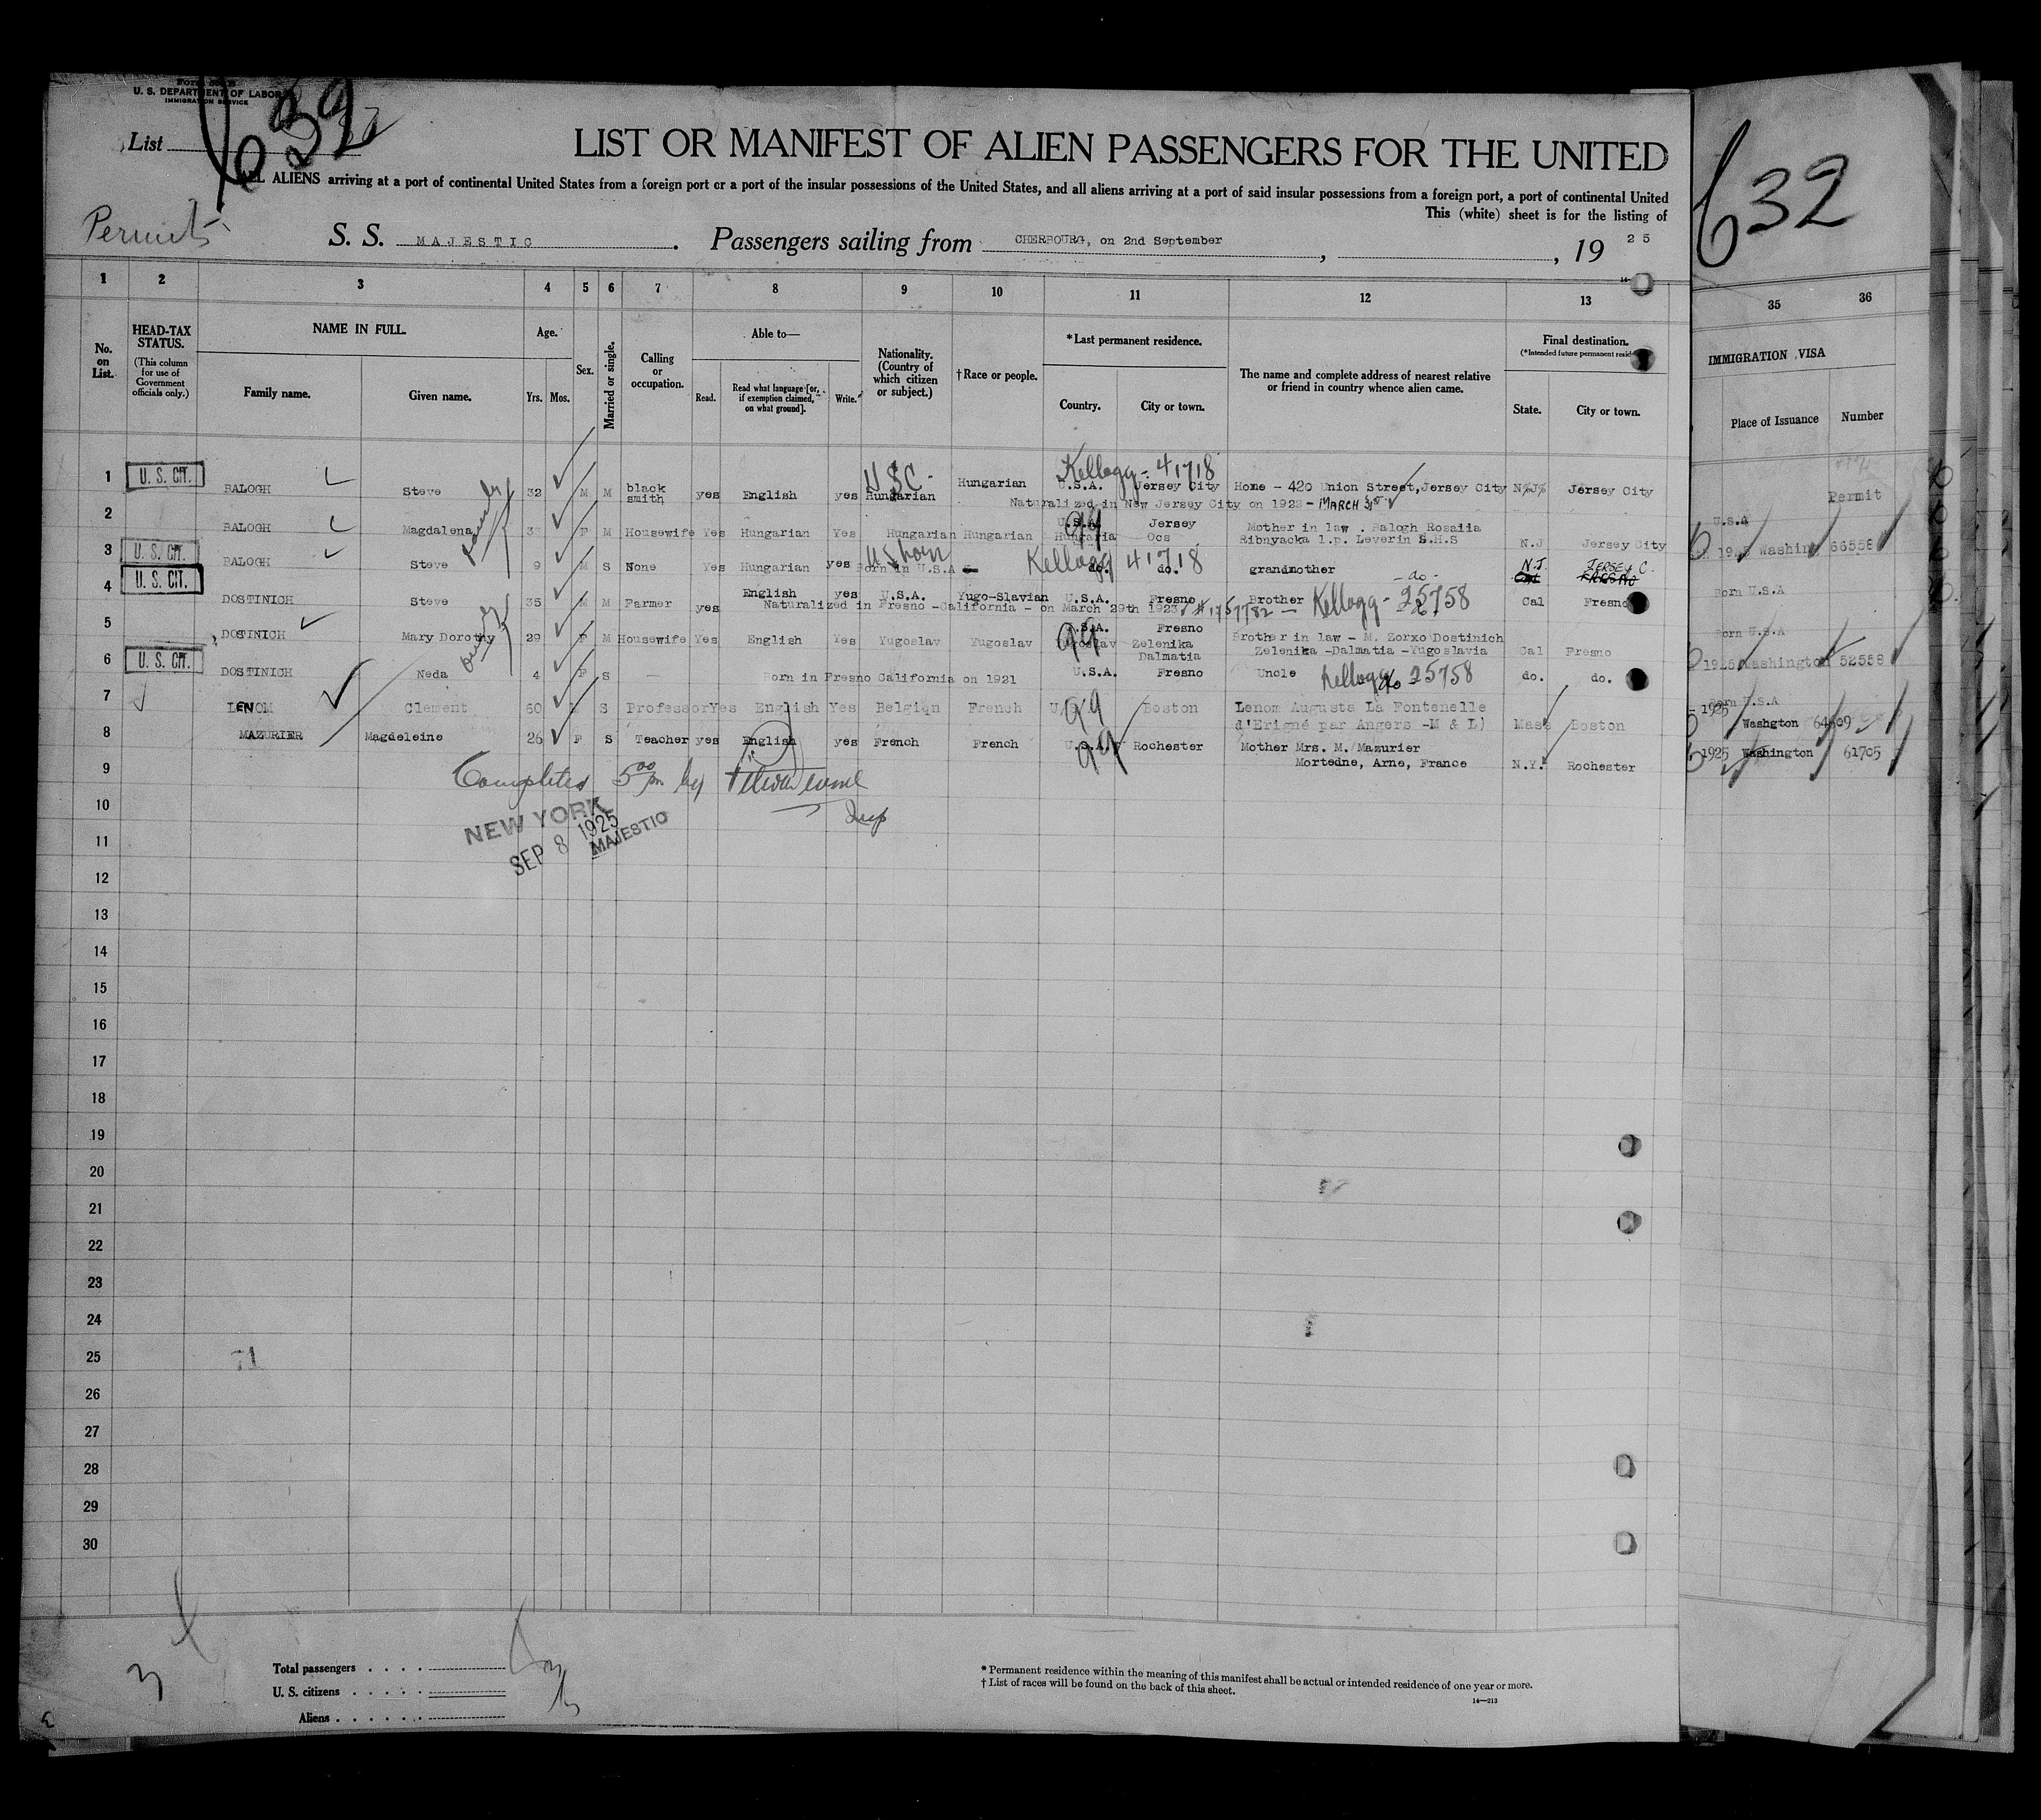 U. S. DEPARTMENT OF LABOR
IMMIGRATION SERVICE
List 632
LIST OR MANIFEST OF ALIEN PASSENGERS FOR THE UNITED
ALL ALIENS arriving at a port of continental United States from a foreign port or a port of the insular possessions of the United States, and all aliens arriving at a port of said insular possessions from a foreign port, a port of continental United
This (white) sheet is for the listing of
Permits
S. S. MAJESTIC. Passengers sailing from CHERBOURG, on 2nd September, , 19 25
632
1 2 3 4 5 6 7 8 9 10 11 12 13 35 36
No. on List.
HEAD-TAX STATUS.
(This column for use of Government officials only.)
NAME IN FULL.
Family name. Given name.
Age.
Yrs. Mos.
Sex.
Married or single.
Calling or occupation.
Able to—
Read. Read what language [or, if exemption claimed, on what ground]. Write.
Nationality. (Country of which citizen or subject.)
† Race or people.
* Last permanent residence.
Country. City or town.
The name and complete address of nearest relative or friend in country whence alien came.
Final destination.
(* Intended future permanent resid
State. City or town.
IMMIGRATION VISA
Place of Issuance Number
Kellogg - 41718
1 U. S. CIT. BALOGH Steve 32 M M black smith yes English yes USC - Hungarian Hungarian U.S.A. Jersey City Home - 420 Union Street, Jersey City N.J. Jersey City Permit
Naturalized in New Jersey City on 1923 - MARCH
2 BALOGH Magdalena F M Housewife Yes Hungarian Yes Hungarian Hungarian U.S.A. Jersey Mother in law . Balogh Rosalia
Hungaria Ocs Ribnyacka l.p. Leverin S.H.S N.J Jersey City Washin 66558
3 U. S. CIT. BALOGH Steve 9 M S None Yes Hungarian yes US born Born in U.S.A Kellogg 41718 do. do. grandmother - do - N.J. JERSEY C. Born U.S.A
4 U. S. CIT. DOSTINICH Steve 35 M M Farmer yes English yes U.S.A. Yugo-Slavian U.S.A. Fresno Brother Kellogg - 25758 Cal Fresno Born U.S.A
Naturalized in Fresno -California - on March 29th 1923 # 1757782
5 DOSTINICH Mary Dorothy 29 F M Housewife Yes English Yes Yugoslav Yugoslav U.S.A. Fresno Brother in law - M. Zorxo Dostinich
Zelenika Dalmatia Zelenika -Dalmatia -Yugoslavia Cal Fresno 1925 Washington 52558
6 U. S. CIT. DOSTINICH Neda 4 F S Born in Fresno California on 1921 U.S.A. Fresno Uncle Kellogg 25758 do. do. Born U.S.A
7 LENOM Clement 60 S Professor Yes English Yes Belgian French Boston Lenom Augusta La Fontenelle
d'Erigné par Angers -M & L) Mass Boston 1925 Washgton
8 MAZURIER Magdeleine 26 F S Teacher yes English yes French French U.S.A. Rochester Mother Mrs. M. Mazurier 1925 Washington 61705
Mortedne, Arne, France N.Y. Rochester
9
Completed 5 00 pm by
Insp
10
NEW YORK
SEP 8 1925
MAJESTIC
11
12
13
14
15
16
17
18
19
20
21
22
23
24
25
26
27
28
29
30
Total passengers
U. S. citizens
Aliens
* Permanent residence within the meaning of this manifest shall be actual or intended residence of one year or more.
† List of races will be found on the back of this sheet.
14—213